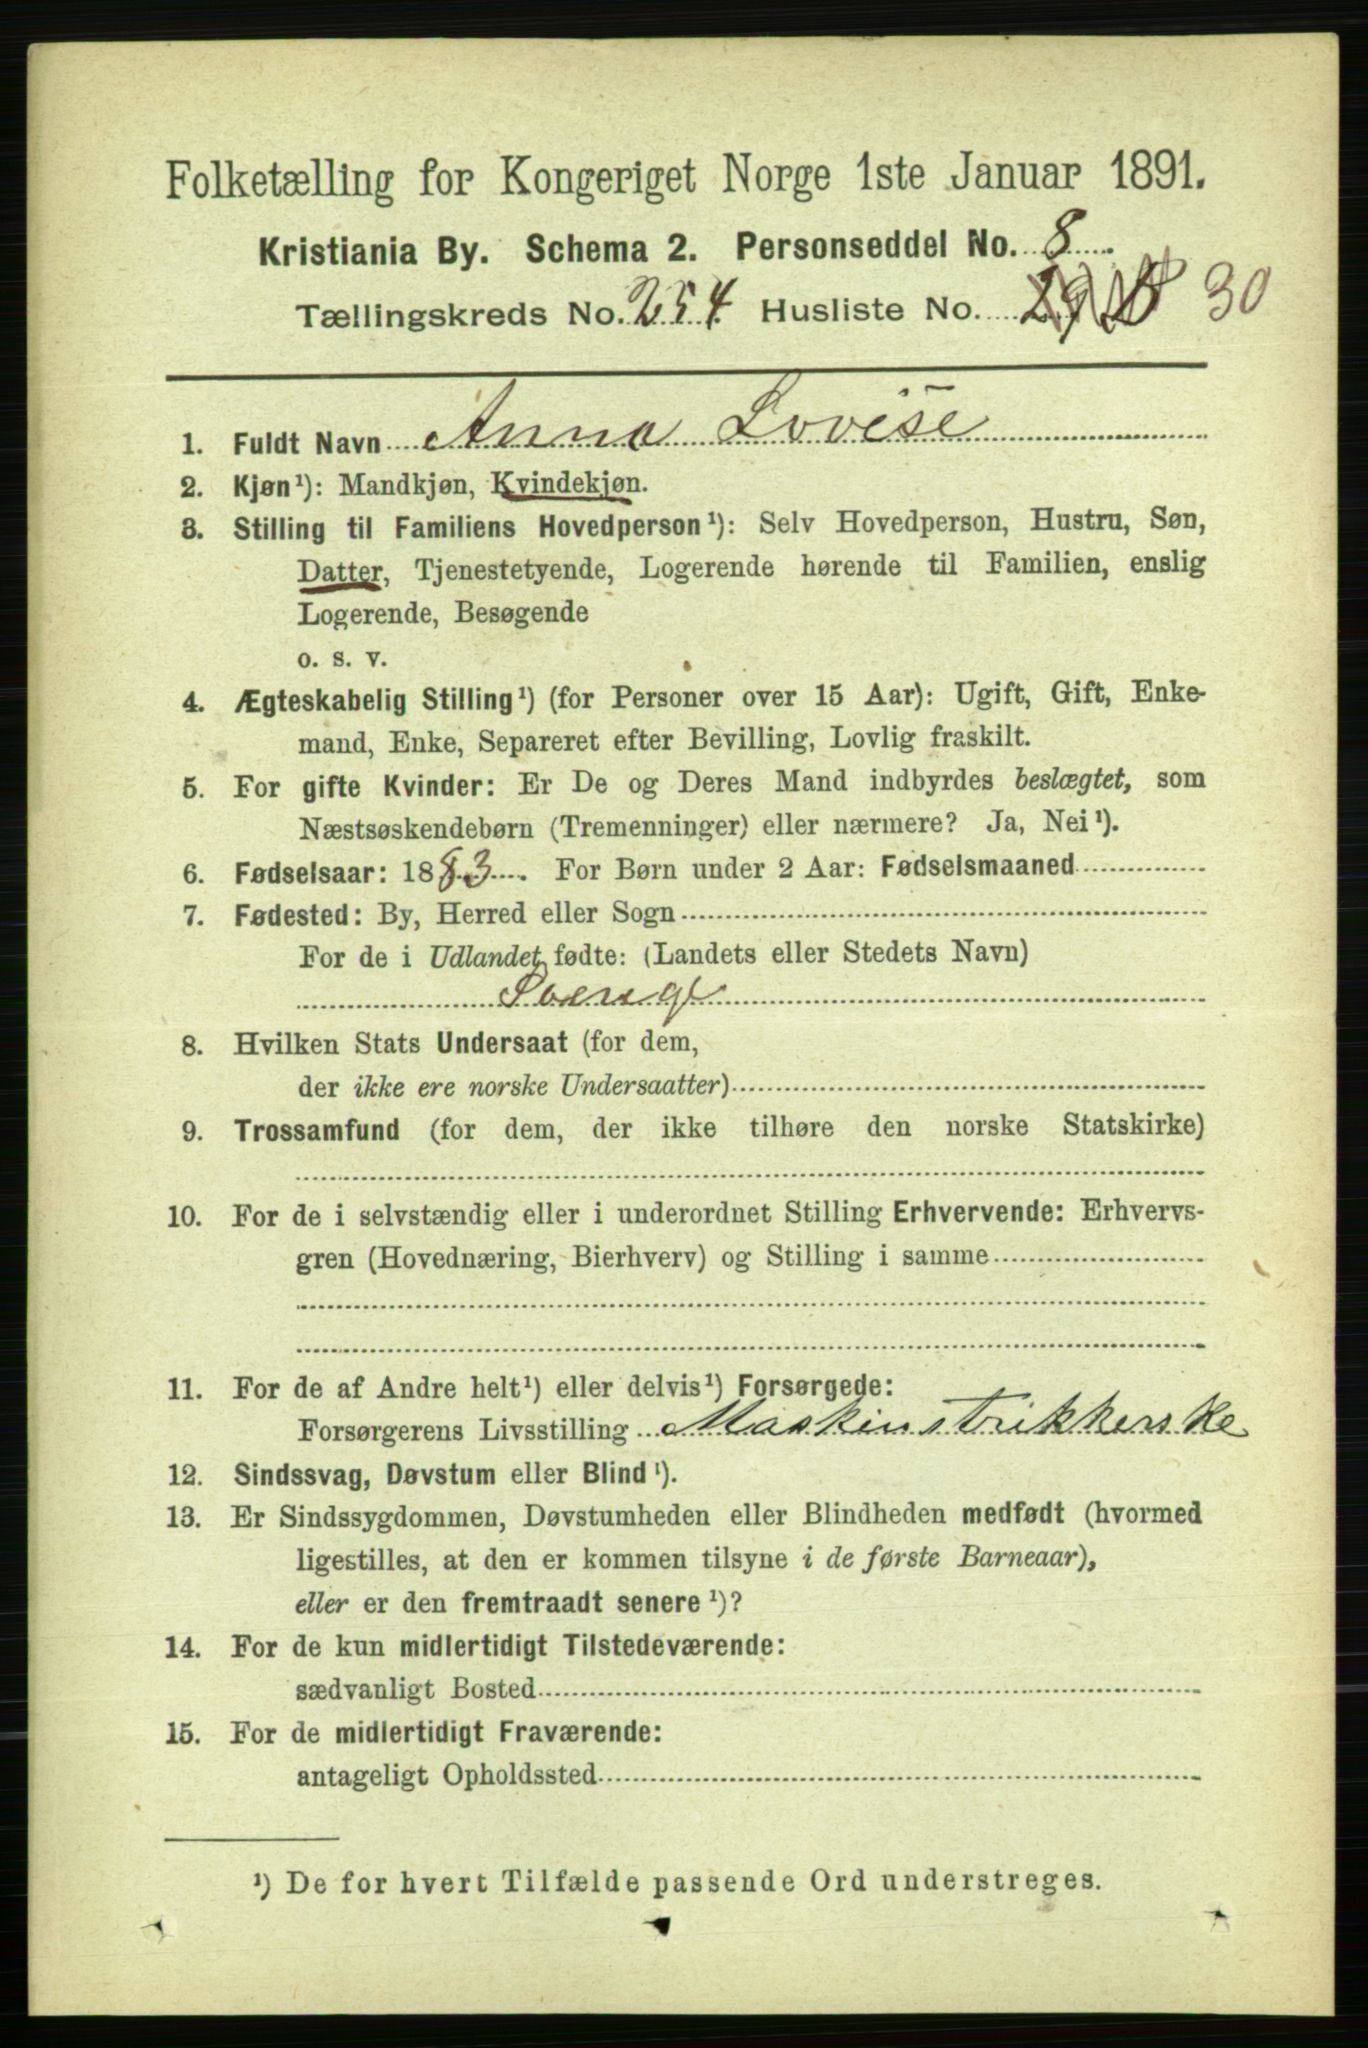 Folketælling for Kongeriget Norge 1ste Januar 1891.
Kristiania By. Schema 2. Personseddel No. 8
Tællingskreds No. 254 Husliste No. 29 B 30
1. Fuldt Navn Anna Lovise
2. Kjøn¹): Mandkjøn, Kvindekjøn.
3. Stilling til Familiens Hovedperson¹): Selv Hovedperson, Hustru, Søn,
Datter, Tjenestetyende, Logerende hørende til Familien, enslig
Logerende, Besøgende
o. s. v.
4. Ægteskabelig Stilling¹) (for Personer over 15 Aar): Ugift, Gift, Enke-
mand, Enke, Separeret efter Bevilling, Lovlig fraskilt.
5. For gifte Kvinder: Er De og Deres Mand indbyrdes beslægtet, som
Næstsøskendebørn (Tremenninger) eller nærmere? Ja, Nei¹).
6. Fødselsaar: 1883. For Børn under 2 Aar: Fødselsmaaned
7. Fødested: By, Herred eller Sogn
For de i Udlandet fødte: (Landets eller Stedets Navn)
Sverige
8. Hvilken Stats Undersaat (for dem,
der ikke ere norske Undersaatter)
9. Trossamfund (for dem, der ikke tilhøre den norske Statskirke)
10. For de i selvstændig eller i underordnet Stilling Erhvervende: Erhvervs-
gren (Hovednæring, Bierhverv) og Stilling i samme
11. For de af Andre helt¹) eller delvis¹) Forsørgede:
Forsørgerens Livsstilling Maskinstrikkerske
12. Sindssvag, Døvstum eller Blind¹).
13. Er Sindssygdommen, Døvstumheden eller Blindheden medfødt (hvormed
ligestilles, at den er kommen tilsyne i de første Barneaar),
eller er den fremtraadt senere¹)?
14. For de kun midlertidigt Tilstedeværende:
sædvanligt Bosted
15. For de midlertidigt Fraværende:
antageligt Opholdssted
¹) De for hvert Tilfælde passende Ord understreges.